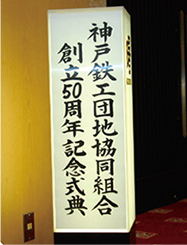 神戸鉄工団地協同組合
創立50周年記念式典